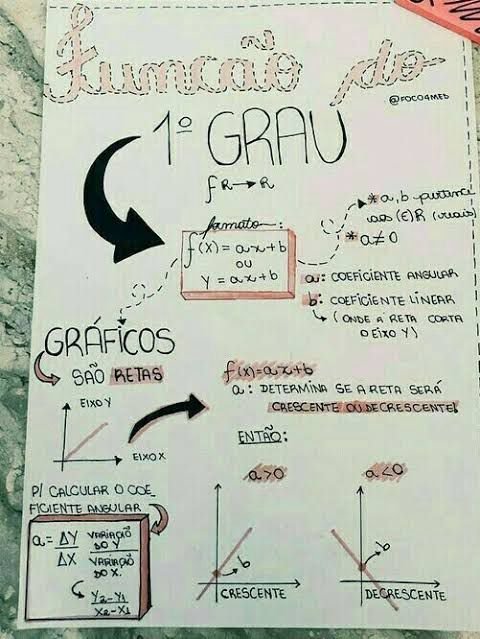 Função do
@FOCO4MED
1º GRAU
f R→R
formato:
f(x) = ax+b
OU
Y = ax+b
* a, b pertence
aos (∈) R (reais)
* a≠0
a: COEFICIENTE ANGULAR
b: COEFICIENTE LINEAR
↳ (ONDE A RETA CORTA
O EIXO Y)
GRÁFICOS
SÃO RETAS
EIXO Y
EIXO X
f(x)=ax+b
a: DETERMINA SE A RETA SERÁ
CRESCENTE OU DECRESCENTE!
ENTÃO:
P/ CALCULAR O COE
FICIENTE ANGULAR
a = ΔY/ΔX
VARIAÇÃO
DO Y
VARIAÇÃO
DO X.
Y2-Y1
X2-X1
a>0
b
CRESCENTE
a<0
b
DECRESCENTE